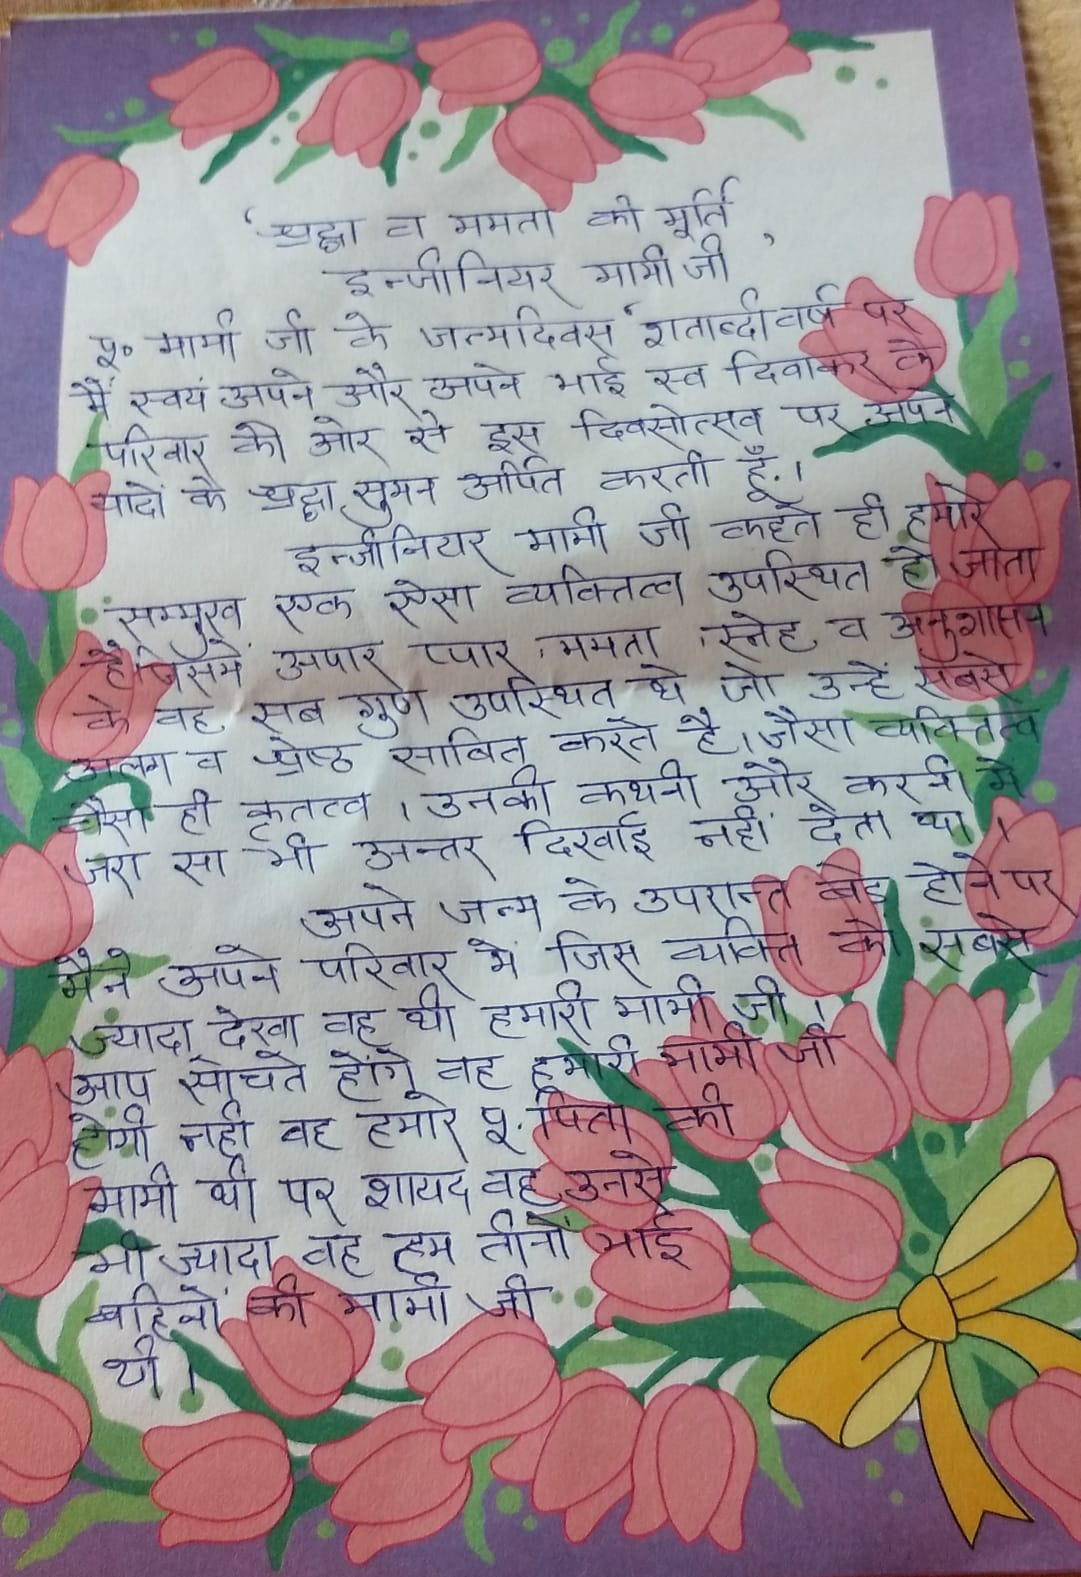 'श्रद्धा व ममता की मूर्ति
इन्जीनियर मामी जी'
पू० मामी जी के जन्मदिवस 'शताब्दी वर्ष पर
मैं स्वयं अपने और अपने भाई स्व दिवाकर के
परिवार की ओर से इस दिवसोत्सव पर अपने
यादों के श्रद्धा सुमन अर्पित करती हूँ.।
इन्जीनियर मामी जी कहते ही हमारे
सम्मुख एक ऐसा व्यक्तित्व उपस्थित हो जाता
है जिसमें अपार प्यार, ममता, स्नेह व अनुशासन
के वह सब गुण उपस्थित थे जो उन्हें सबसे
अलग व श्रेष्ठ साबित करते है। जैसा व्यक्तित्व
वैसा ही कृतत्व। उनकी कथनी और करनी में
जरा सा भी अन्तर दिखाई नहीं देता था।
अपने जन्म के उपरान्त बडे होने पर
मैने अपने परिवार में जिस व्यक्ति को सबसे
ज्यादा देखा वह थी हमारी मामी जी।
आप सोचते होंगे वह हमारी मामी जी
होगी नहीं वह हमारे पू. पिता की
मामी थी पर शायद वह उनसे
भी ज्यादा वह हम तीनों भाई
बहिनों की मामी जी
थी।